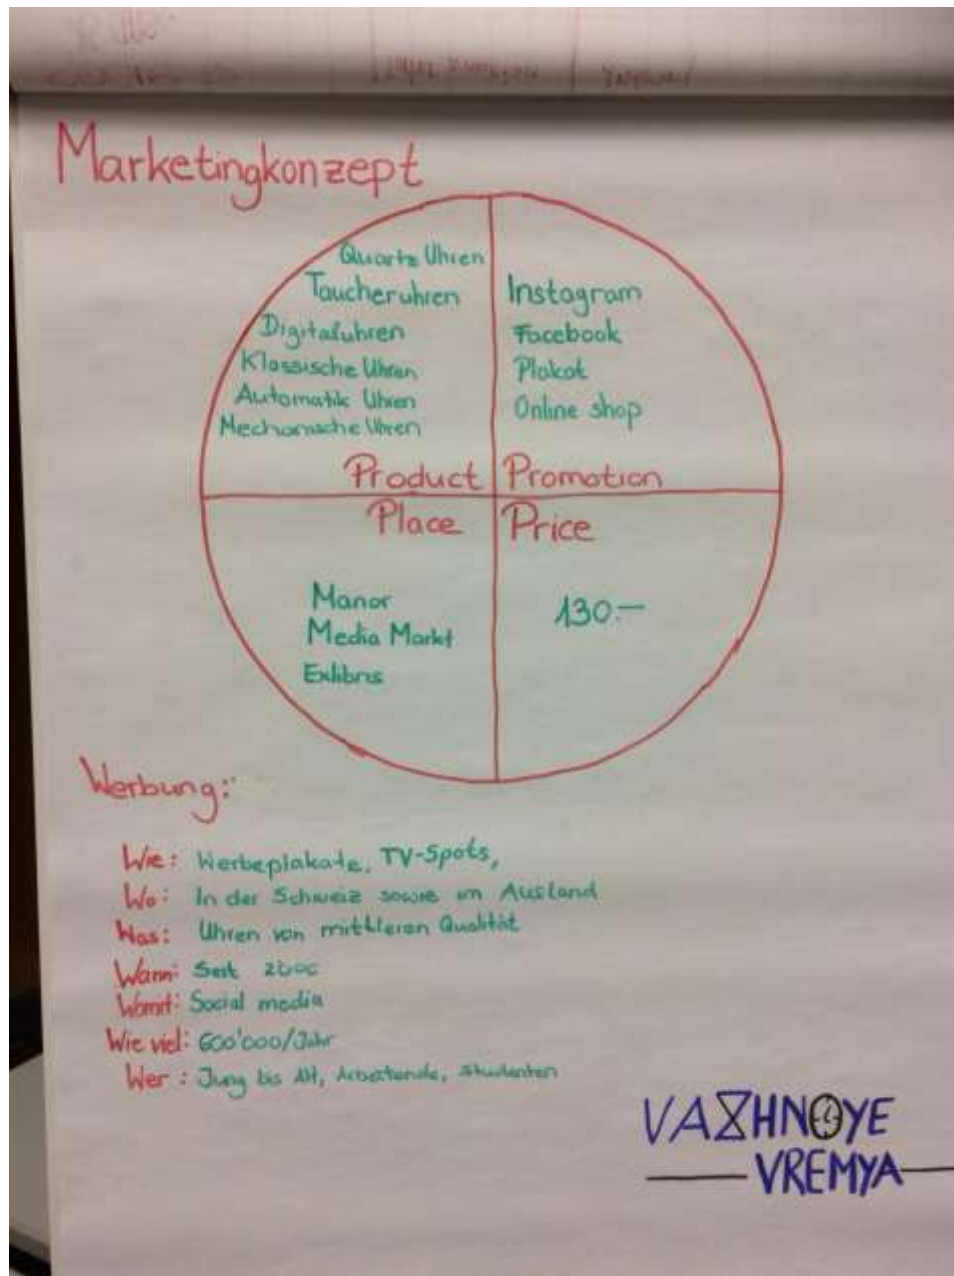 Marketingkonzept
Quartz Uhren
Taucheruhren
Digitaluhren
Klassische Uhren
Automatik Uhren
Mechanische Uhren
Product
Instagram
Facebook
Plakat
Online shop
Promotion
Place
Manor
Media Markt
Exlibris
Price
130.—
Werbung:
Wie: Werbeplakate, TV-Spots,
Wo: In der Schweiz sowie im Ausland
Was: Uhren von mittleren Qualität
Wann: Seit 2000
Womit: Social media
Wie viel: 600'000/Jahr
Wer: Jung bis Alt, Arbeitende, Studenten
VAZHNOYE
VREMYA